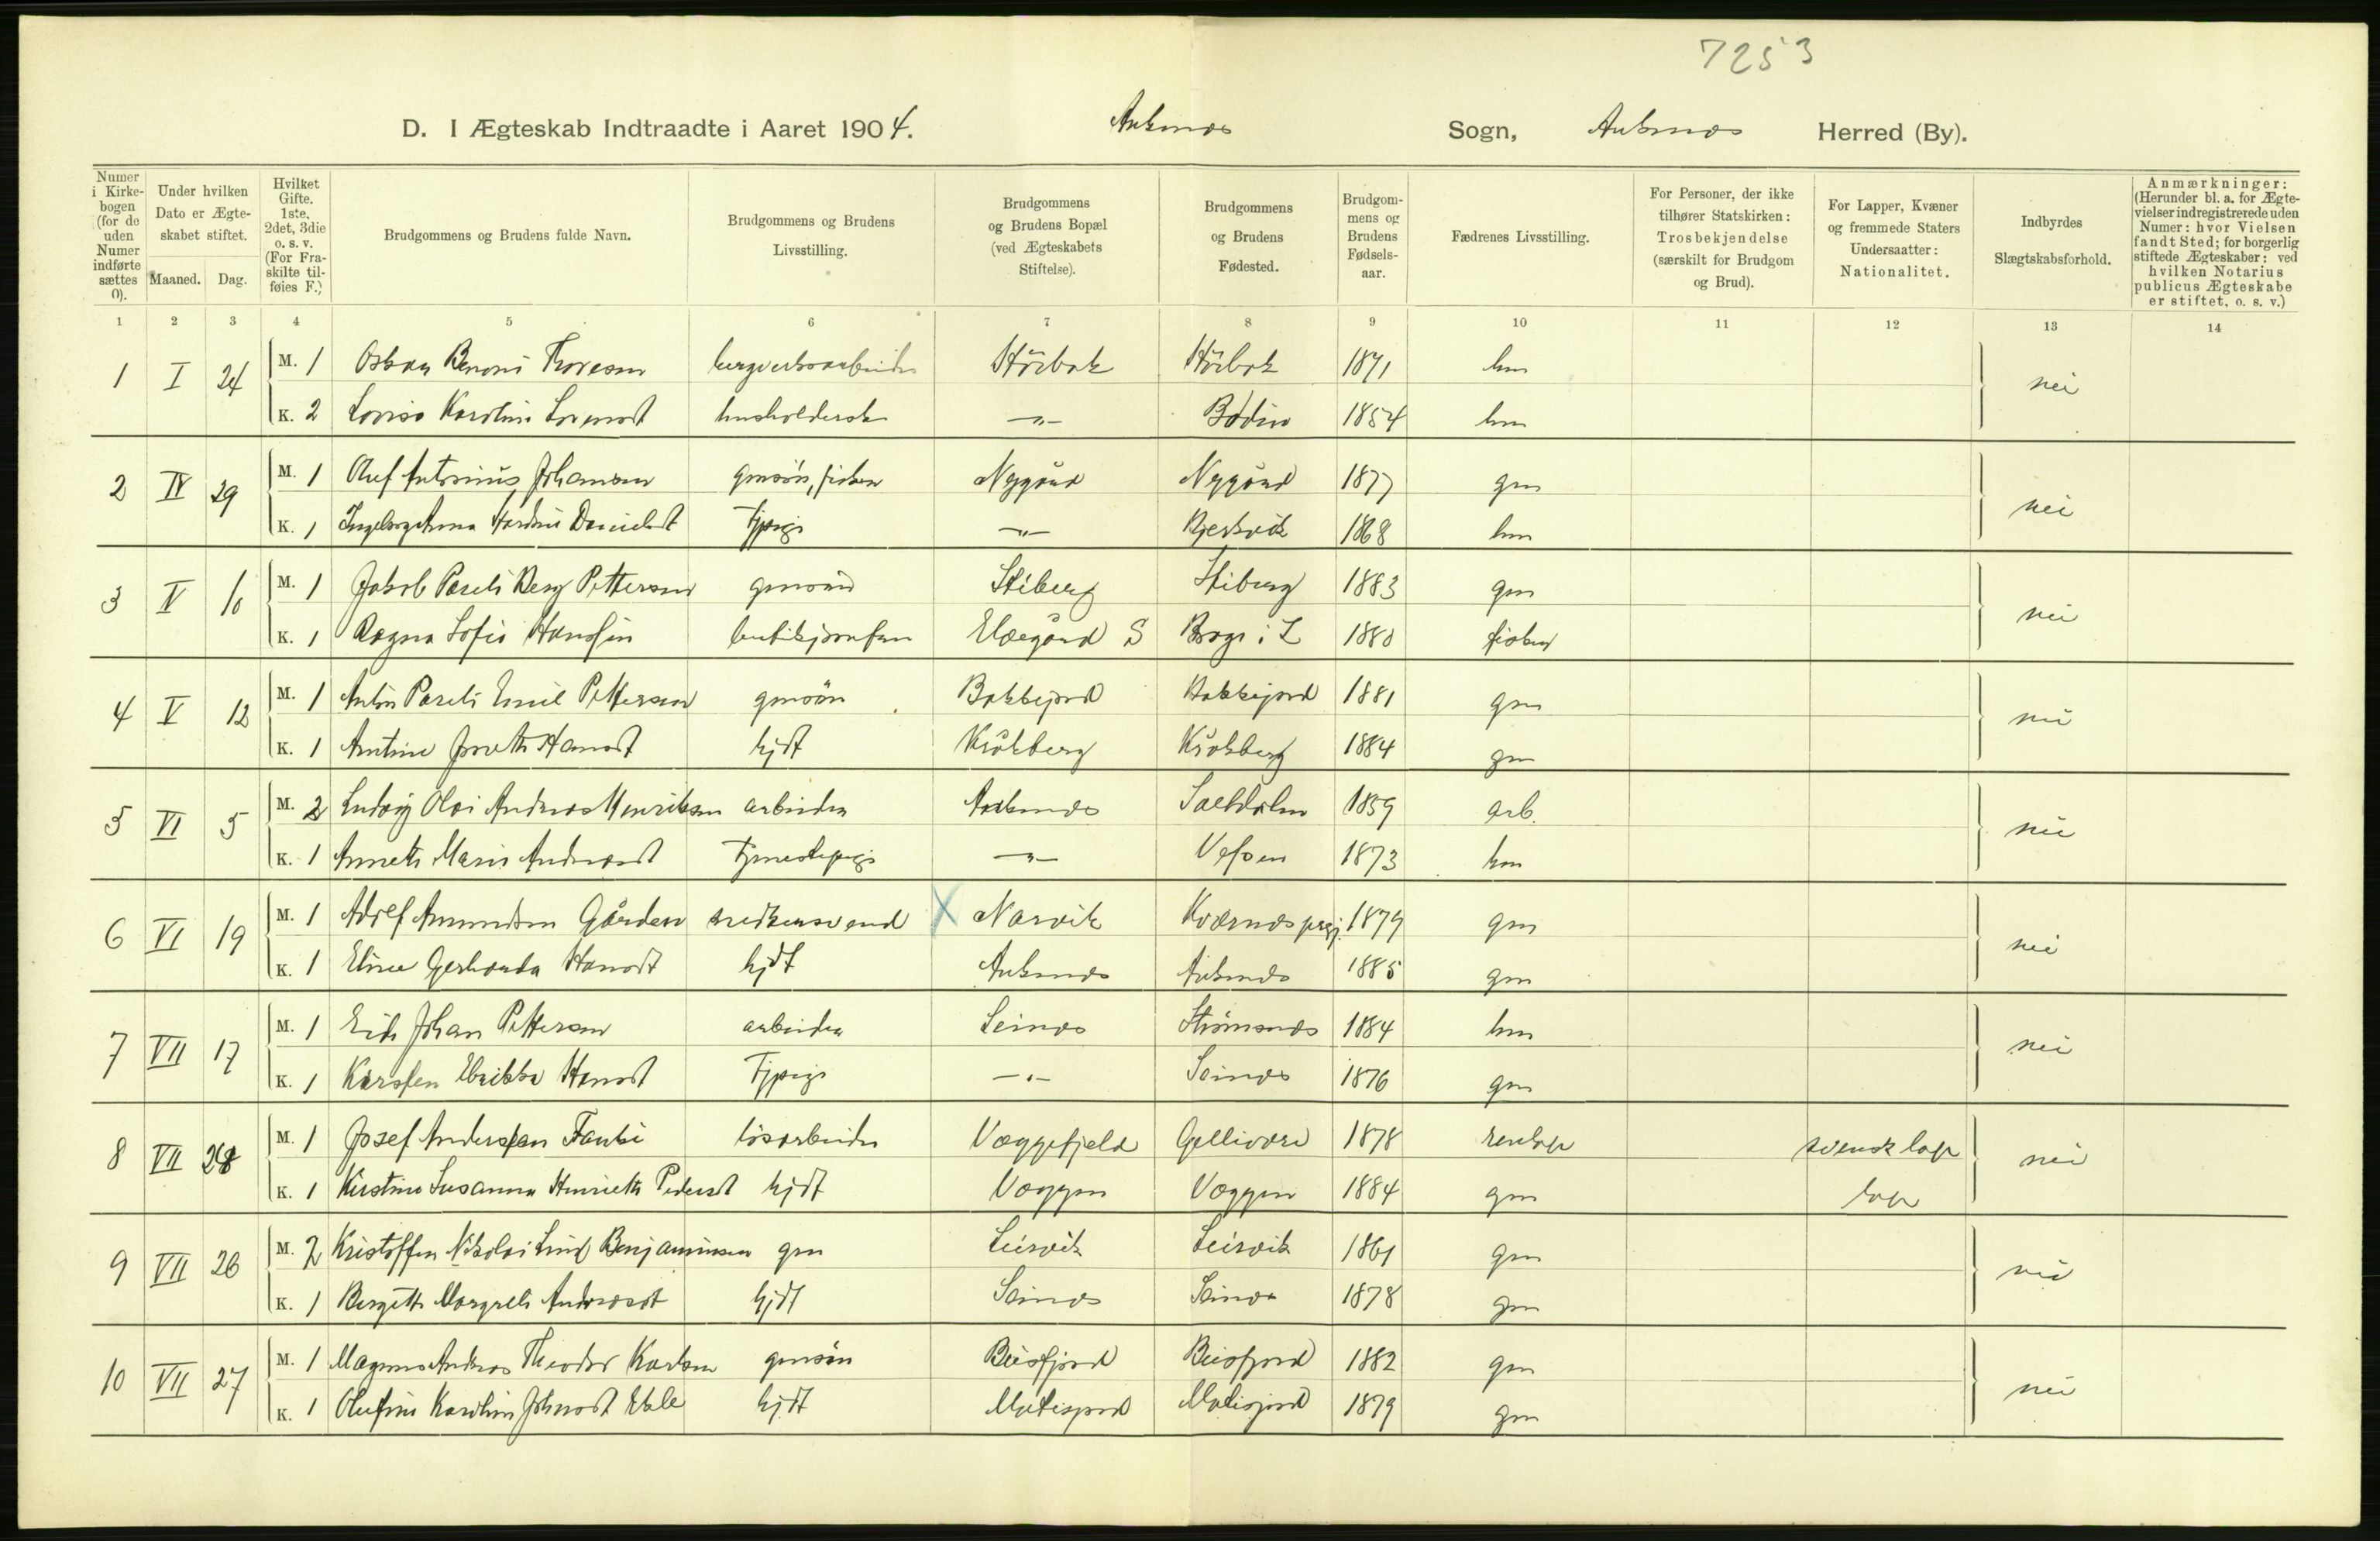 7253
D. I Ægteskab Indtraadte i Aaret 1904. Ankenæs Sogn, Ankenæs Herred (By).
Numer i Kirkebogen (for de uden Numer indførte sættes 0).
Under hvilken Dato er Ægteskabet stiftet.
Maaned. Dag.
Hvilket Gifte. 1ste, 2det, 3die o. s. v. (For Fraskilte tilføies F.)
Brudgommens og Brudens fulde Navn.
Brudgommens og Brudens Livsstilling.
Brudgommens og Brudens Bopæl (ved Ægteskabets Stiftelse).
Brudgommens og Brudens Fødested.
Brudgommens og Brudens Fødselsaar.
Fædrenes Livsstilling.
For Personer, der ikke tilhører Statskirken: Trosbekjendelse (særskilt for Brudgom og Brud).
For Lapper, Kvæner og fremmede Staters Undersaatter: Nationalitet.
Indbyrdes Slægtskabsforhold.
Anmærkninger: (Herunder bl. a. for Ægtevielser indregistrerede uden Numer: hvor Vielsen fandt Sted; for borgerlig stiftede Ægteskaber: ved hvilken Notarius publicus Ægteskabe er stiftet, o. s. v.)
1 2 3 4 5 6 7 8 9 10 11 12 13 14
1 I 24 M. 1 Oskar Benoni Thoresen bergverksarbeider 1871 hm nei
K. 2 Lovisa Karoline husholderske —"— Bodin 1854 hm
2 IV 29 M. 1 Oluf Antonius Johansen gmsön, fisker Nygård Nygård 1877 gm nei
K. 1 Ingeborg Anna Danielsdt Tjpige —"— Bjerkvik 1868 hm
3 V 10 M. 1 Jakob Pareli Berg Pettersen gmsön Stiberg Stiberg 1883 gm nei
K. 1 Ragna Sofie Hanssen butikjomfru Elvegård S Borge i L 1880 fisker
4 V 12 M. 1 Anton Pareli Emil Pettersen gmsön Bokkejord Bakkejord 1881 gm nei
K. 1 Antine Hansdt hjdt Kråkberg Kråkberg 1884 gm
5 VI 5 M. 2 Ludvig Olai Andreas Henriksen arbeider Ankenæs Saltdalen 1859 arb. nei
K. 1 Anneth Marie Andreasdt Tjenestepige —"— Vefsen 1873 hm
6 VI 19 M. 1 Adolf Amundsen Gården snedkersvend X Narvik Kværnæs prgj. 1879 gm nei
K. 1 Eline Gerharda Hansdt hjdt Ankenæs Ankenæs 1885 gm
7 VII 17 M. 1 Erik Johan Pettersen arbeider Leinæs Strömsnæs 1884 hm nei
K. 1 Karsten Ulrikka Hansdt Tjpige —"— Leinæs 1876 gm
8 VII 24 M. 1 Josef Anderssen Fanki lösarbeider Væggefjeld Gellivare 1878 renlap svensk lap nei
K. 1 Kirstine Susanna Henriette Pedersdt hjdt Væggen Væggen 1884 gm lap
9 VII 26 M. 2 Kristoffer Nikolai Lind Benjaminsen gm Leirvik Leirvik 1861 gm nei
K. 1 Bergitte Margrete Andreasdt hjdt Leinæs Leinæs 1878 gm
10 VII 27 M. 1 Magnus Andreas Theodor Karlsen gmsön Beisfjord Beisfjord 1882 gm nei
K. 1 Olufine Karoline Johnsdt hjdt 1879 gm